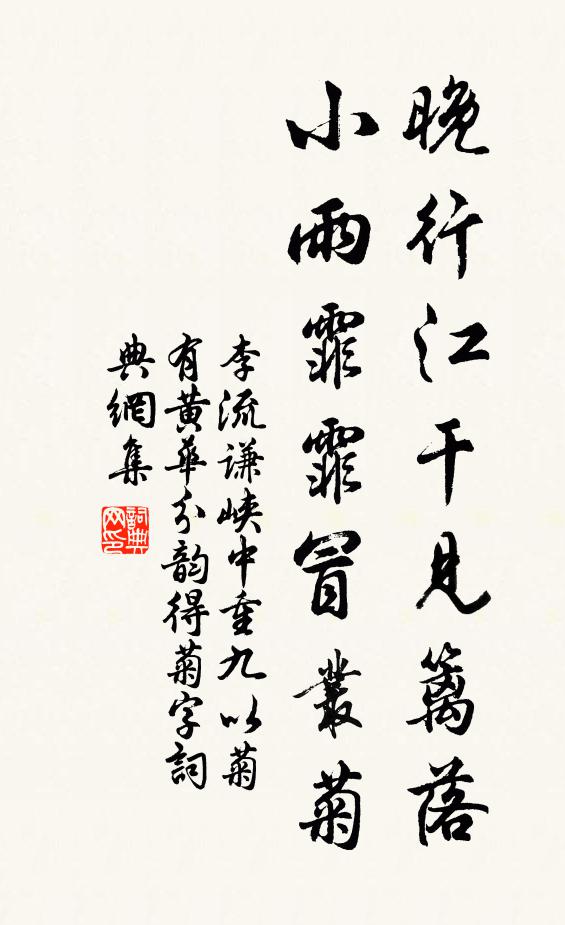 晚行江干見籬落
小雨霏霏冒叢菊
李流謙峽中重九以菊
有黄華分韵得菊字詞
典網集
詞典
网印